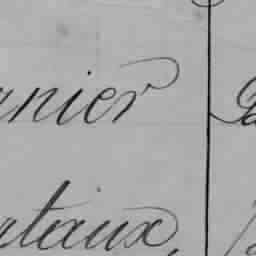 rnier
rtaux,